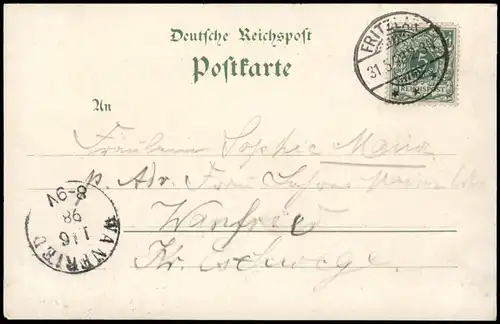 Deutsche Reichspost
Postkarte
FRITZLAR
31.5.
REICHSPOST
An
Fräulein Sophie
p. Adr. Frau
Wanfried
Kr. Eschwege.
WANFRIED
1 6
98
8-9V